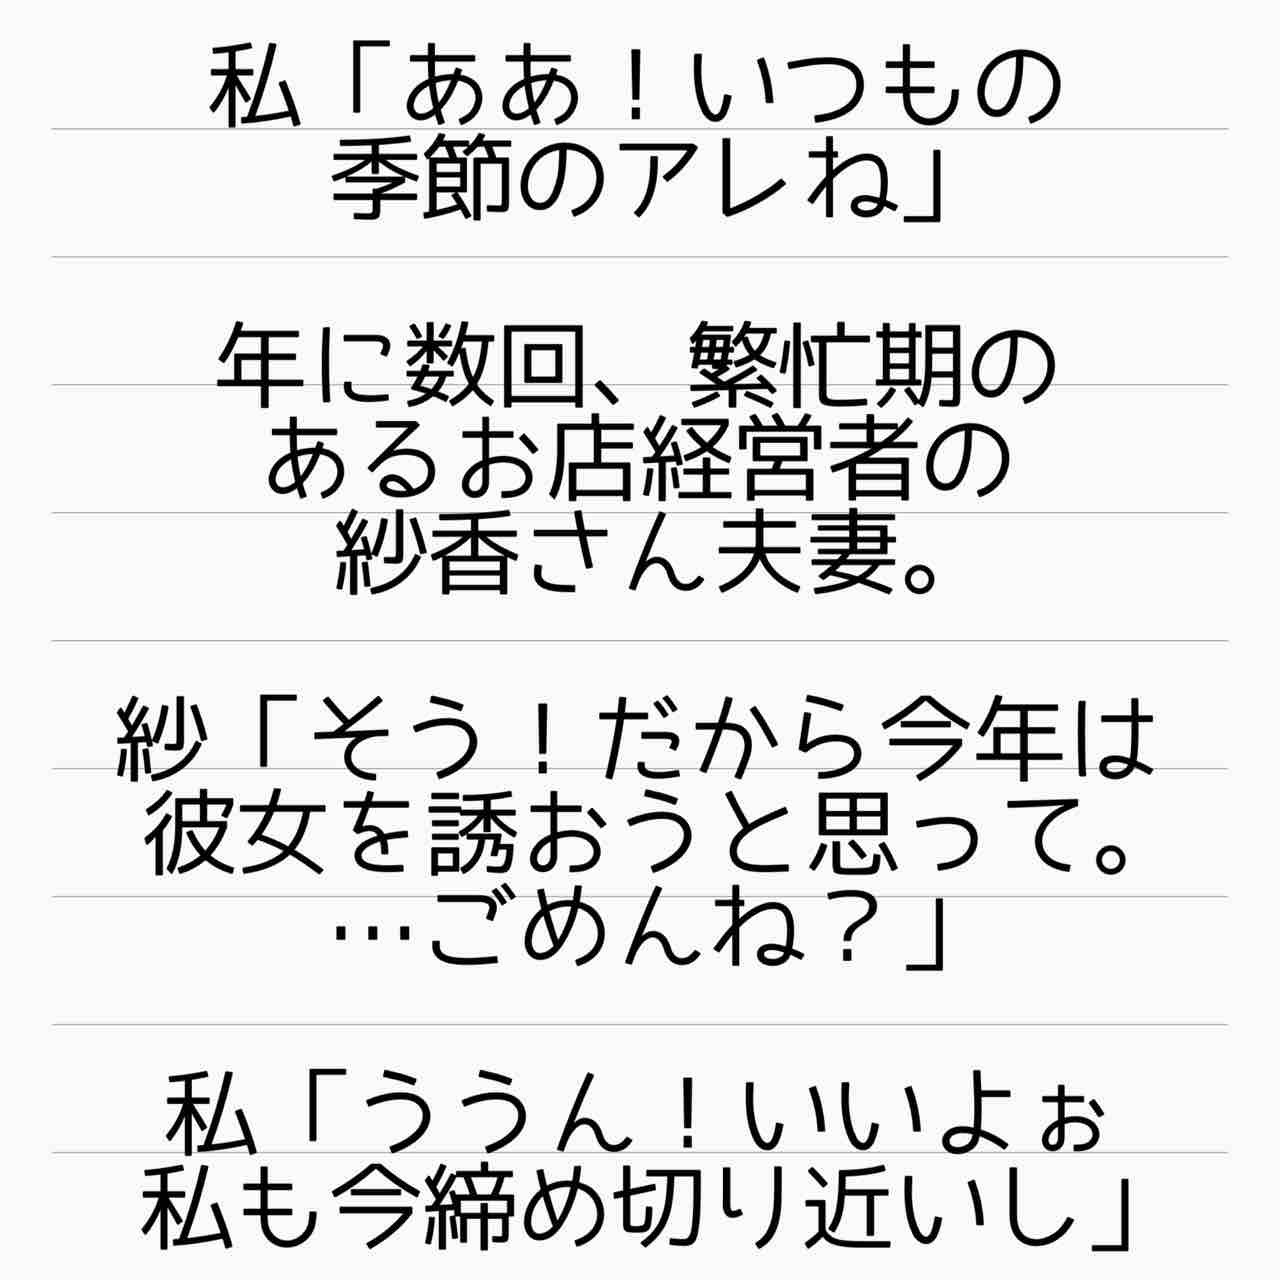 私「ああ！いつもの
季節のアレね」
年に数回、繁忙期の
あるお店経営者の
紗香さん夫妻。
紗「そう！だから今年は
彼女を誘おうと思って。
…ごめんね？」
私「ううん！いいよぉ
私も今締め切り近いし」